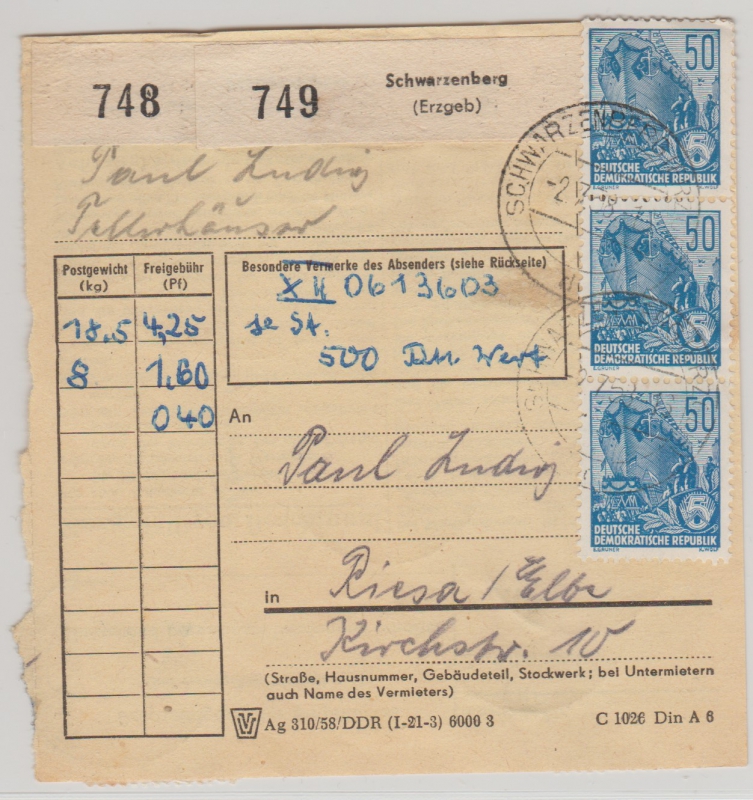 748
749
Schwarzenberg
(Erzgeb)
Paul Ludwig
Tellerhäuser
Postgewicht
(kg)
Freigebühr
(Pf)
18.5 4,25
8 1.60
040
Besondere Vermerke des Absenders (siehe Rückseite)
XII 0613603
je St.
500 Wert
An
Paul Ludwig
in Riesa / Elbe
Kirchstr. 10
(Straße, Hausnummer, Gebäudeteil, Stockwerk; bei Untermietern
auch Name des Vermieters)
Ag 310/58/DDR (I-21-3) 6000 3
C 1026 Din A 6
50
DEUTSCHE
DEMOKRATISCHE REPUBLIK
E.GRUNER R.WOLF
50
DEUTSCHE
DEMOKRATISCHE REPUBLIK
E.GRUNER R.WOLF
50
DEUTSCHE
DEMOKRATISCHE REPUBLIK
E.GRUNER R.WOLF
SCHWARZENBERG